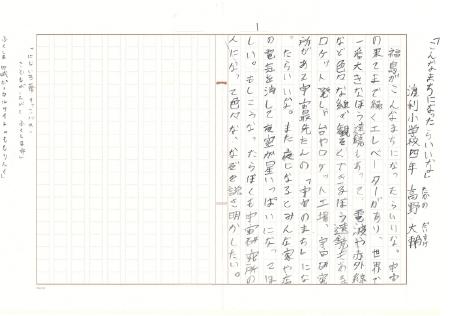 「こんなまちになったらいいな」
渡利小学校四年 高野 大輔
たかの だいすけ
福島がこんなまちになったらいいな。宇宙
の果てまで続くエレベーターがあり、世界で
一番大きなぼう遠鏡もあって、電波や赤外線
など色々な線が観そくできるぼう遠鏡もある
ロケット発しゃ台やロケット工場、宇宙研究
所があって宇宙最先たんの「宇宙のまち」にな
ったらいいな。また夜になるとみんな家や店
の電気を消して夜空が星いっぱいになってほ
しい。もしこうなったらぼくも宇宙研究所の
人になって色々ななぞを説き明かしたい。
1
こどもがえがくふくしま市